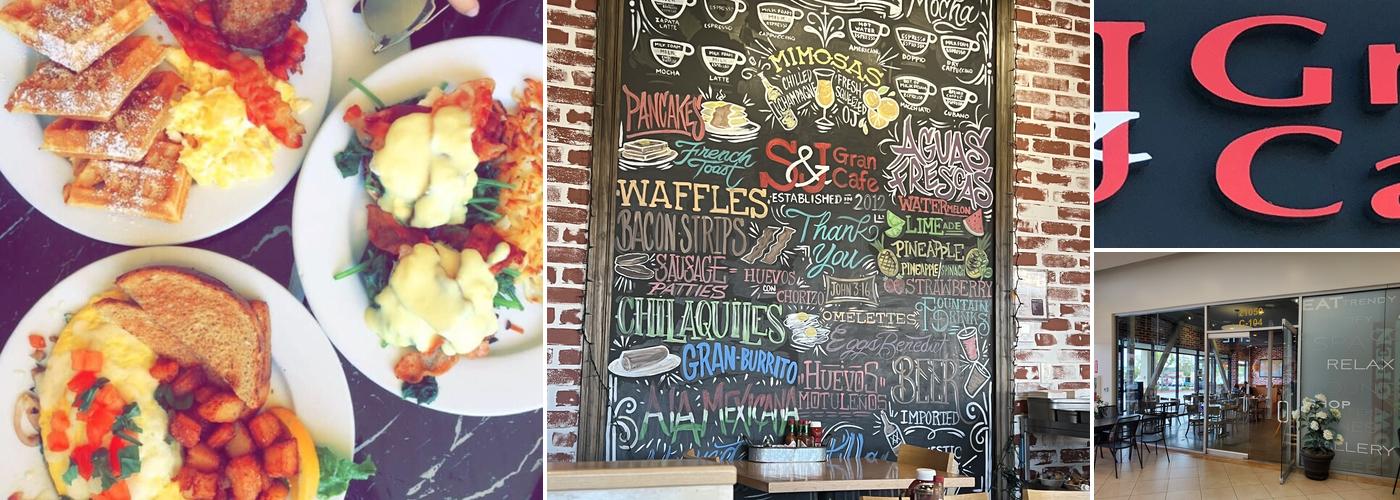 Mocha
ZAPATA
LATTE
ESPRESSO
MILK FOAM
MILK
ESPRESSO
CAPPUCCINO
HOT
WATER
ESPRESSO
AMERICANO
ESPRESSO
ESPRESSO
DOPPIO
MILK FOAM
ESPRESSO
DRY
CAPPUCCINO
MOCHA
LATTE
MACCHIATO
CUBANO
MIMOSAS
CHILLED
CHAMPAGNE
FRESH
SQUEEZED
OJ
PANCAKES
French
Toast
S&J Gran
Cafe
ESTABLISHED IN 2012
AGUAS
FRESCAS
WAFFLES
BACON STRIPS
Thank
You
WATERMELON
LIMEADE
PINEAPPLE
PINEAPPLE/SPINACH
STRAWBERRY
SAUSAGE
PATTIES
HUEVOS
CON
CHORIZO
JOHN 3:16
CHILAQUILES
OMELETTES
Eggs Benedict
FOUNTAIN
DRINKS
GRAN-BURRITO
HUEVOS
MOTULEÑOS
BEER
A LA MEXICANA
IMPORTED
DOMESTIC
J Gr
& Ca
21050
C-104
EAT TREND
RELAX
SHOP
GALLERY